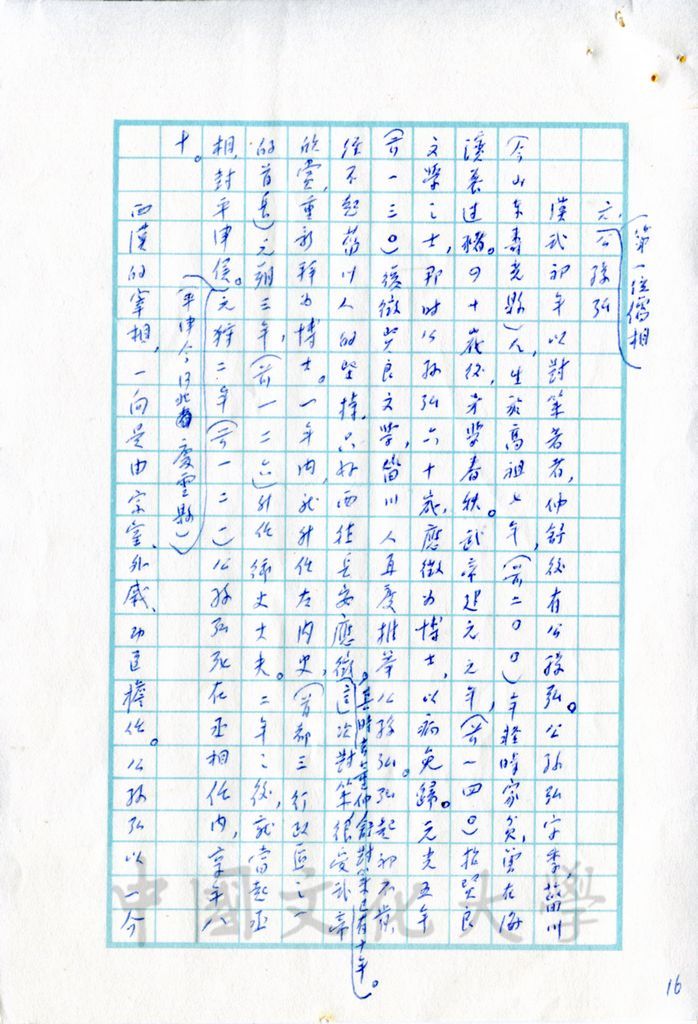 (第一位儒相)
六、公孫弘
漢武初年以對策著者，仲舒後有公孫弘。公孫弘字季，菑川
(今山東壽光縣)人，生於高祖七年，(前二〇〇)年輕時家貧，曾在海
濱養過豬。四十歲後，才學春秋。武帝建元元年，(前一四〇)招賢良
文學之士，那時公孫弘六十歲，應徵為博士，以病免歸。元光五年
(前一三〇)復徵賢良文學，菑川人再度推舉公孫弘。弘起初不肯，
經不起舊川人的堅持，只好西往長安應徵。這次對策很受武帝
(其時去董仲舒對策已有十年。)
欣賞，重新拜為博士。一年內，就升任左內史，(首都三行政區之一
的首長)元朔三年，(前一二六)升任御史大夫。二年之後，就當起丞
相，封平津侯。(元狩二年(前一二一)公孫弘死在丞相任內，享年八
十。
(平津今河北省慶雲縣)
西漢的宰相，一向是由宗室、外戚、功臣擔任。公孫弘以一介
16
中國文化大學